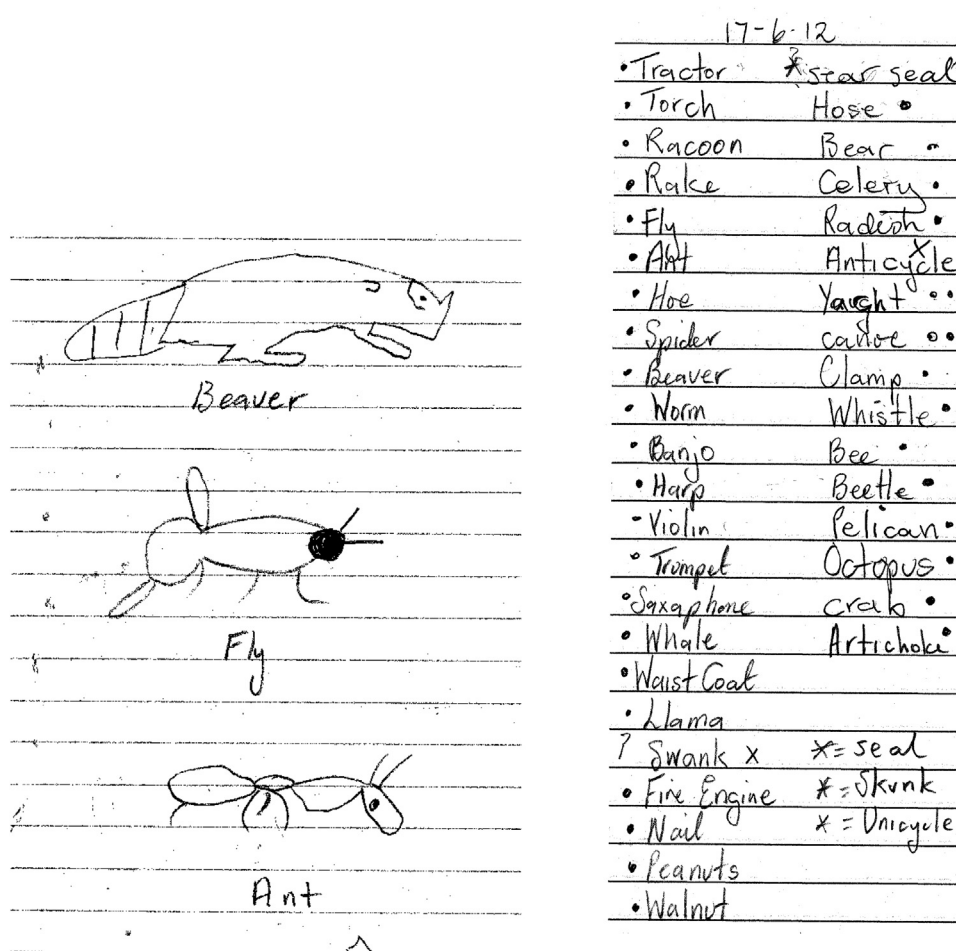 Beaver
Fly
Ant
17-6-12
• Tractor ?* sear seal
• Torch Hose •
• Racoon Bear •
• Rake Celery •
• Fly Radish •
• Ant Anticycle x
• Hoe Yaught ••
• Spider canoe ••
• Beaver Clamp •
• Worm Whistle •
• Banjo Bee •
• Harp Beetle •
• Violin Pelican •
• Trumpet Octopus •
• Saxaphone crab •
• Whale Artichoke •
• Waist Coat
• Llama
? Swank x *= seal
• Fire Engine *= Skunk
• Nail * = Unicycle
• Peanuts
• Walnut